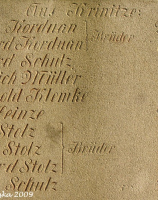 Aus Krinitze:
Kordnan
rd Kordnan
Brüder
rd Schulz
ich Müller
old Klemke
Heinze
Stolz
Stolz
Brüder
rd Stolz
Schulz
ka 2009